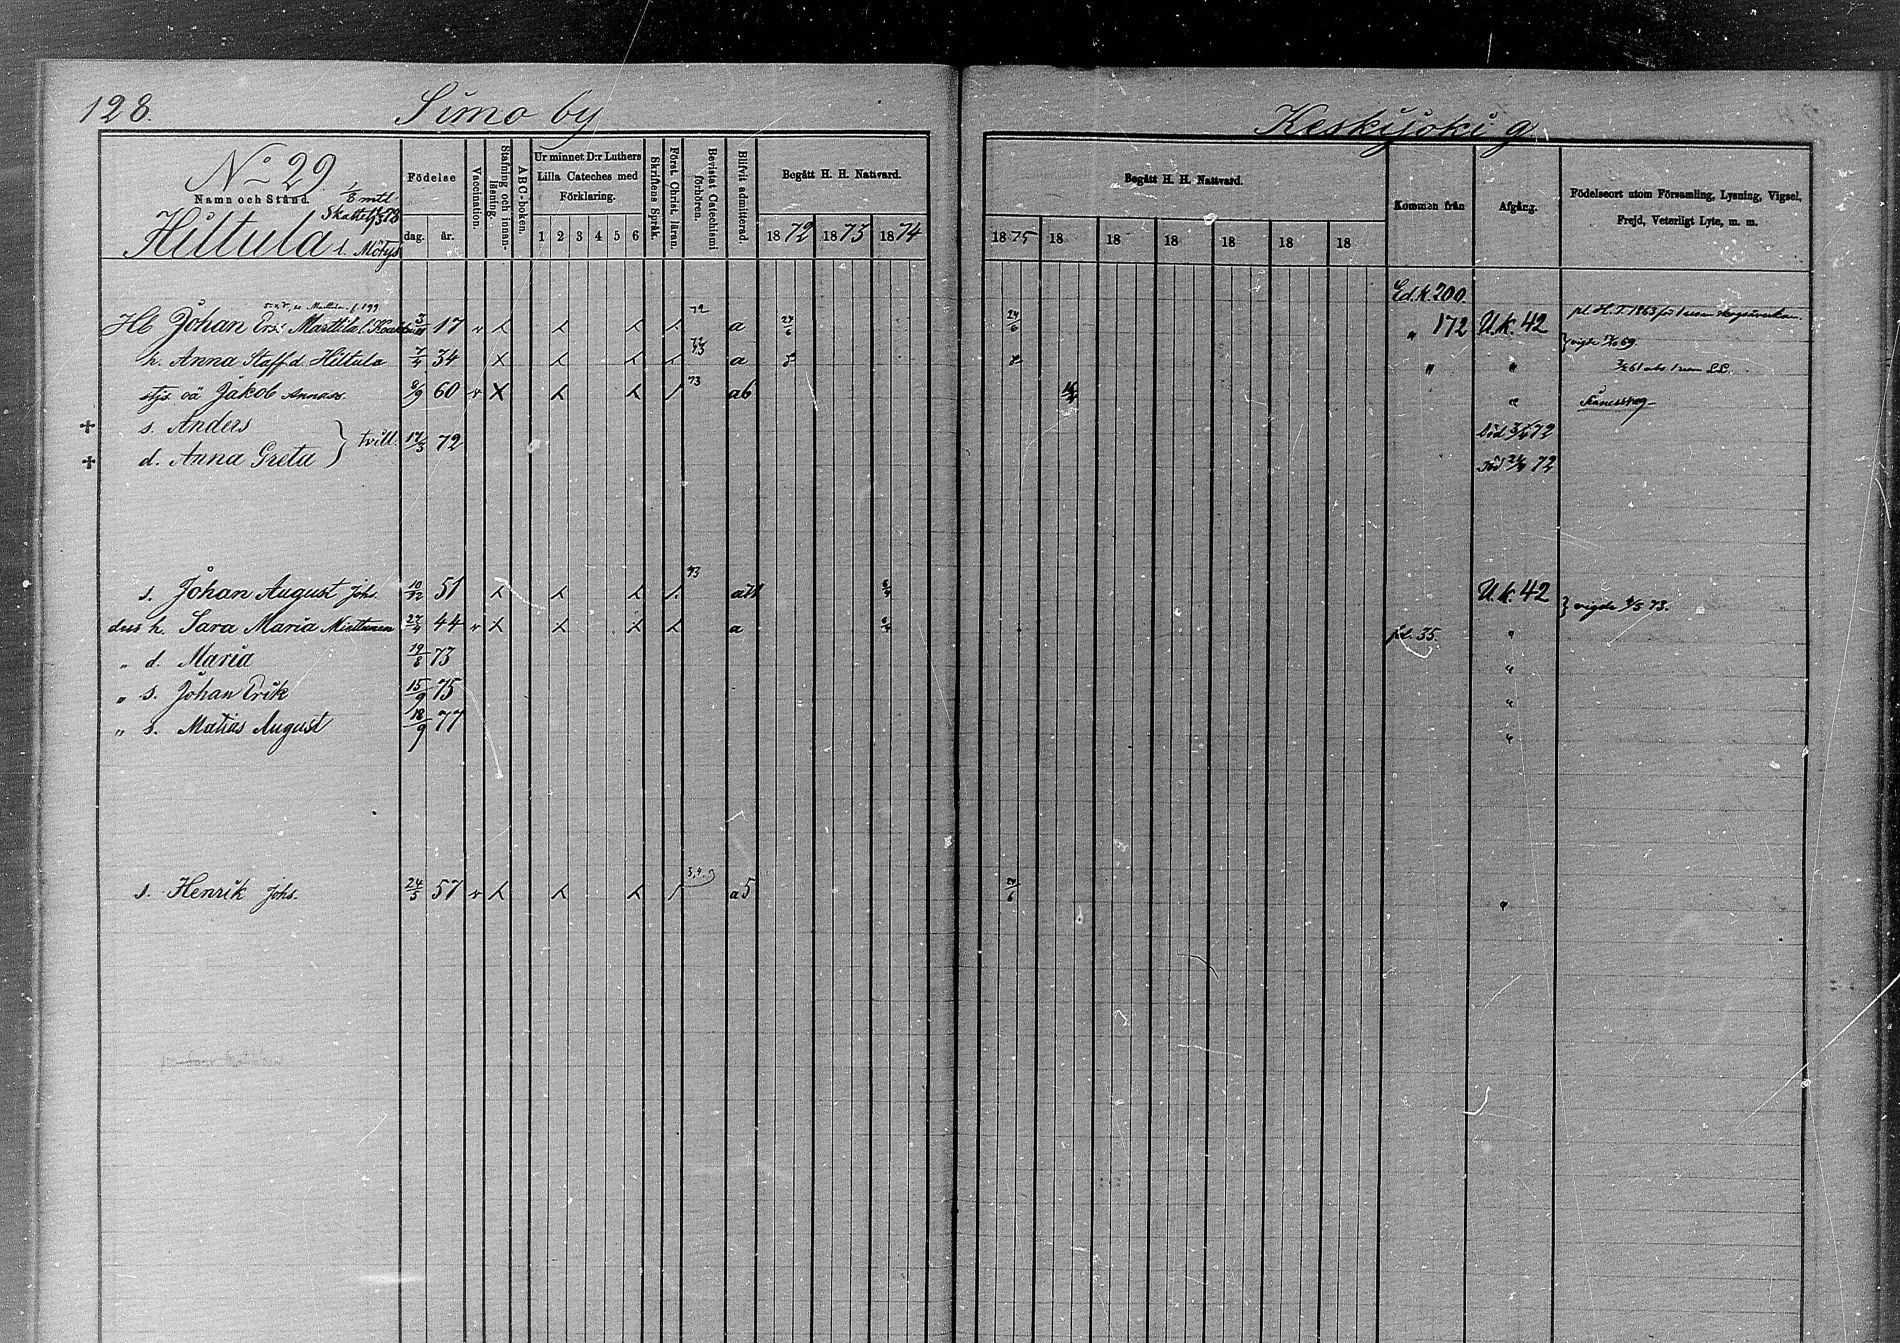 128.
Simo by
Keskijoki g
No 29.
1/8 mtl
Namn och Stånd.
Skatteb. 73
Hiltula l. Mötys
Födelse
dag. år.
Vaccination.
Stafning och innan-läsning.
ABC-boken.
Ur minnet D:r Luthers
Lilla Cateches med
Förklaring.
1 2 3 4 5 6
Skriftens Språk.
Först. Christ. läran.
Bevistat Catechismi förhören.
Blifvit admitterad.
Begått H. H. Nattvard.
1872 1873 1874
Begått H. H. Nattvard.
1875 18 18 18 18 18 18
Kommen från
Afgång.
Födelseort utom Församling, Lysning, Vigsel,
Frejd, Veterligt Lyte, m. m.
Ed. k. 200.
Hb Johan Ers. Marttila 17 v a 24/6 24/6 " 172 U. k. 42
h. Anna Staffsd. Hiltula 7/4 34 a " "
vigde 69.
stjs oä Jakob Annass. 60 v 73 a6 "
s. Anders
tvill. 17/3 72
död 72
d. Anna Greta
död 72
s. Johan August Johs. 10/12 51 73 U. k. 42
vigde 73.
dess h. Sara Maria Miettunen 27/4 44 v a 35. "
" d. Maria 19/8 73 "
" s. Johan Erik 15/9 75 "
" s. Matias August 18/9 77 "
s. Henrik Johs. 24/5 57 v 3,4.5 a5 24/6 "